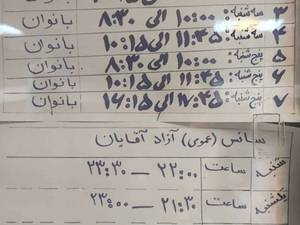 ۳ سه شنبه: ۱۰:۰۰ الی ۸:۳۰ بانوان
۴ سه شنبه: ۱۱:۴۵ الی ۱۰:۱۵ بانوان
۵ پنج شنبه: ۱۰:۰۰ الی ۸:۳۰ بانوان
۶ پنج شنبه: ۱۱:۴۵ الی ۱۰:۱۵ بانوان
۷ پنج شنبه: ۱۷:۴۵ الی ۱۶:۱۵ بانوان
سانس (عمومی) آزاد آقایان
شنبه ساعت ۲۲:۰۰ — ۲۳:۳۰
یکشنبه ساعت ۲۱:۳۰ — ۲۳:۰۰